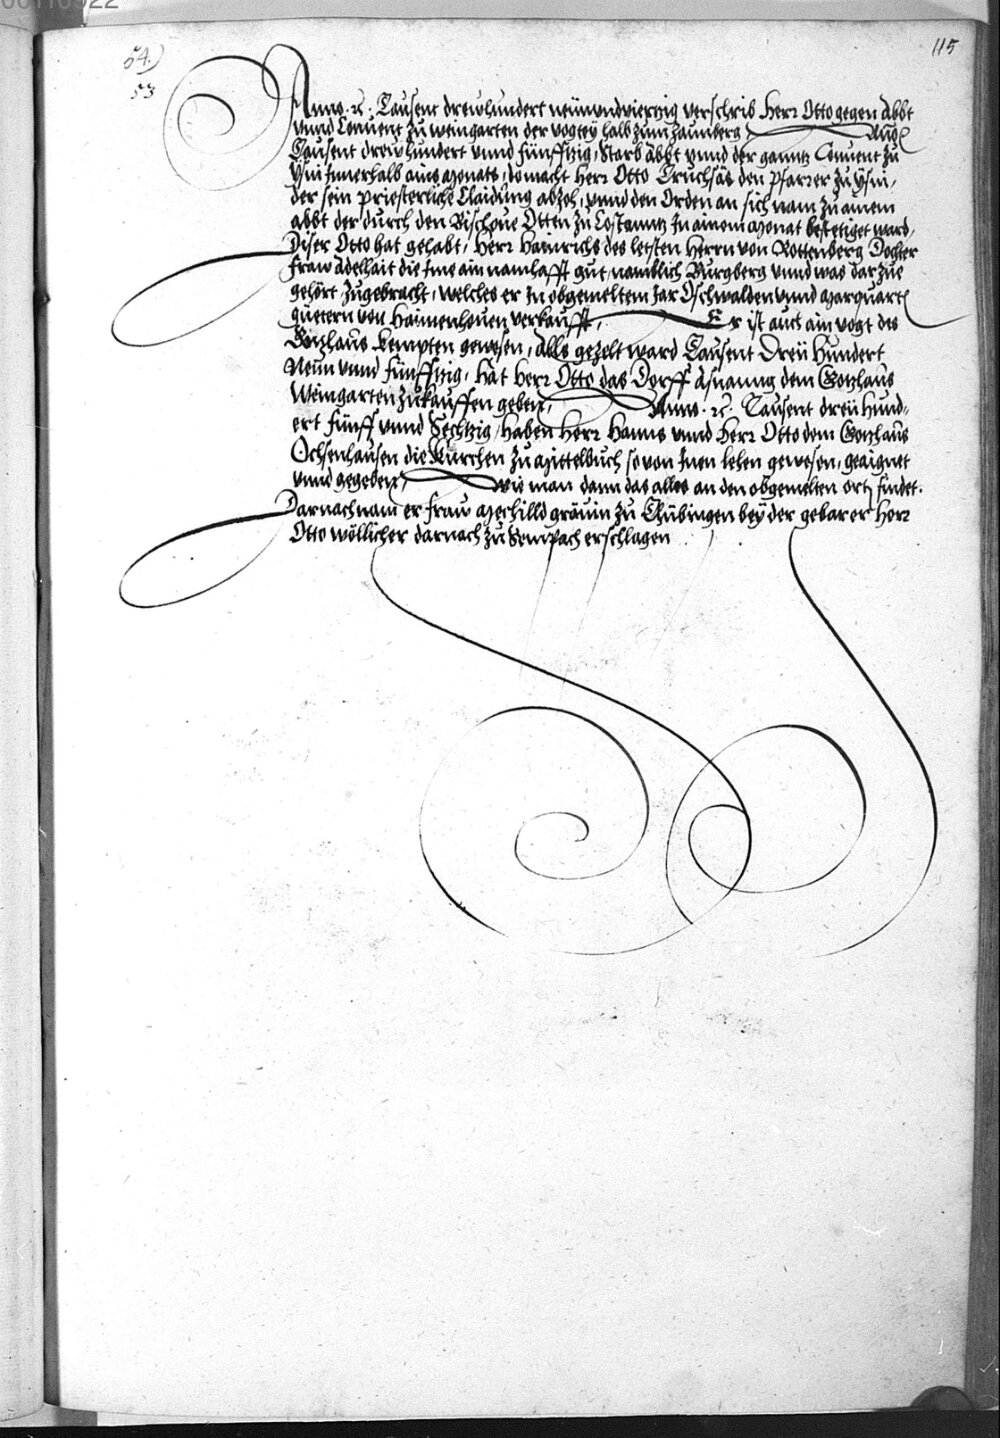 54.)
53
115
Anno. ꝛc. Tausent drewhundert neünvndviertzig verschrib Herr Otto gegen Abbt
vnnd Conuent zu Weingarten der vogtey halb zum Zaunberg
Tausent drewhundert vnnd fünfftzig, Starb Abbt vnnd der ganntz Conuent zu
Ysni Innerhalb ains Monats, do macht Herr Otto Truchsäs den Pfarrer zu Ysni,
der sein priesterliche Claidung abzoh, vnnd den Orden an sich nam zu ainem
abbt der durch den Bischoue Otten zu Costanntz In ainem Monat bestetiget ward,
Diser Otto hat gehabt, Herr Hainrichs des letsten Herrn von Rottenberg Dochter
Fraw Adelhait die Ime ain namhafft gut, namblich Burgberg vnnd was dar zue
gehört zugebracht, welches er In obgemeltem Jar Oschwalden vnnd Marquart
guetern von Haimenhouen verkaufft, Er ist auch ain vogt des
Gotzhaus Kempten gewesen, Alls gezelt ward Tausent Dreü Hundert
Neün vnnd fünfftzig, hat Herr Otto das Dorff Asnanng dem Gotzhaus
Weingarten zukauffen geben, Anno. ꝛc. Tausent dreü hund-
ert fünff vnnd Sechtzig, haben Herr Hanns vnnd Herr Otto dem Gotzhaus
Ochsenhausen die Kürchen zu Mittelbuch so von Inen lehen gewesen, geaignet
vnnd gegeben, wie man dann das alles an den obgemelten ort findet.
Darnach nam er Fraw Mechilld gräuin zu Thübingen bey der gebar er Herr
Otto wöllicher darnach zu Sempach erschlagen